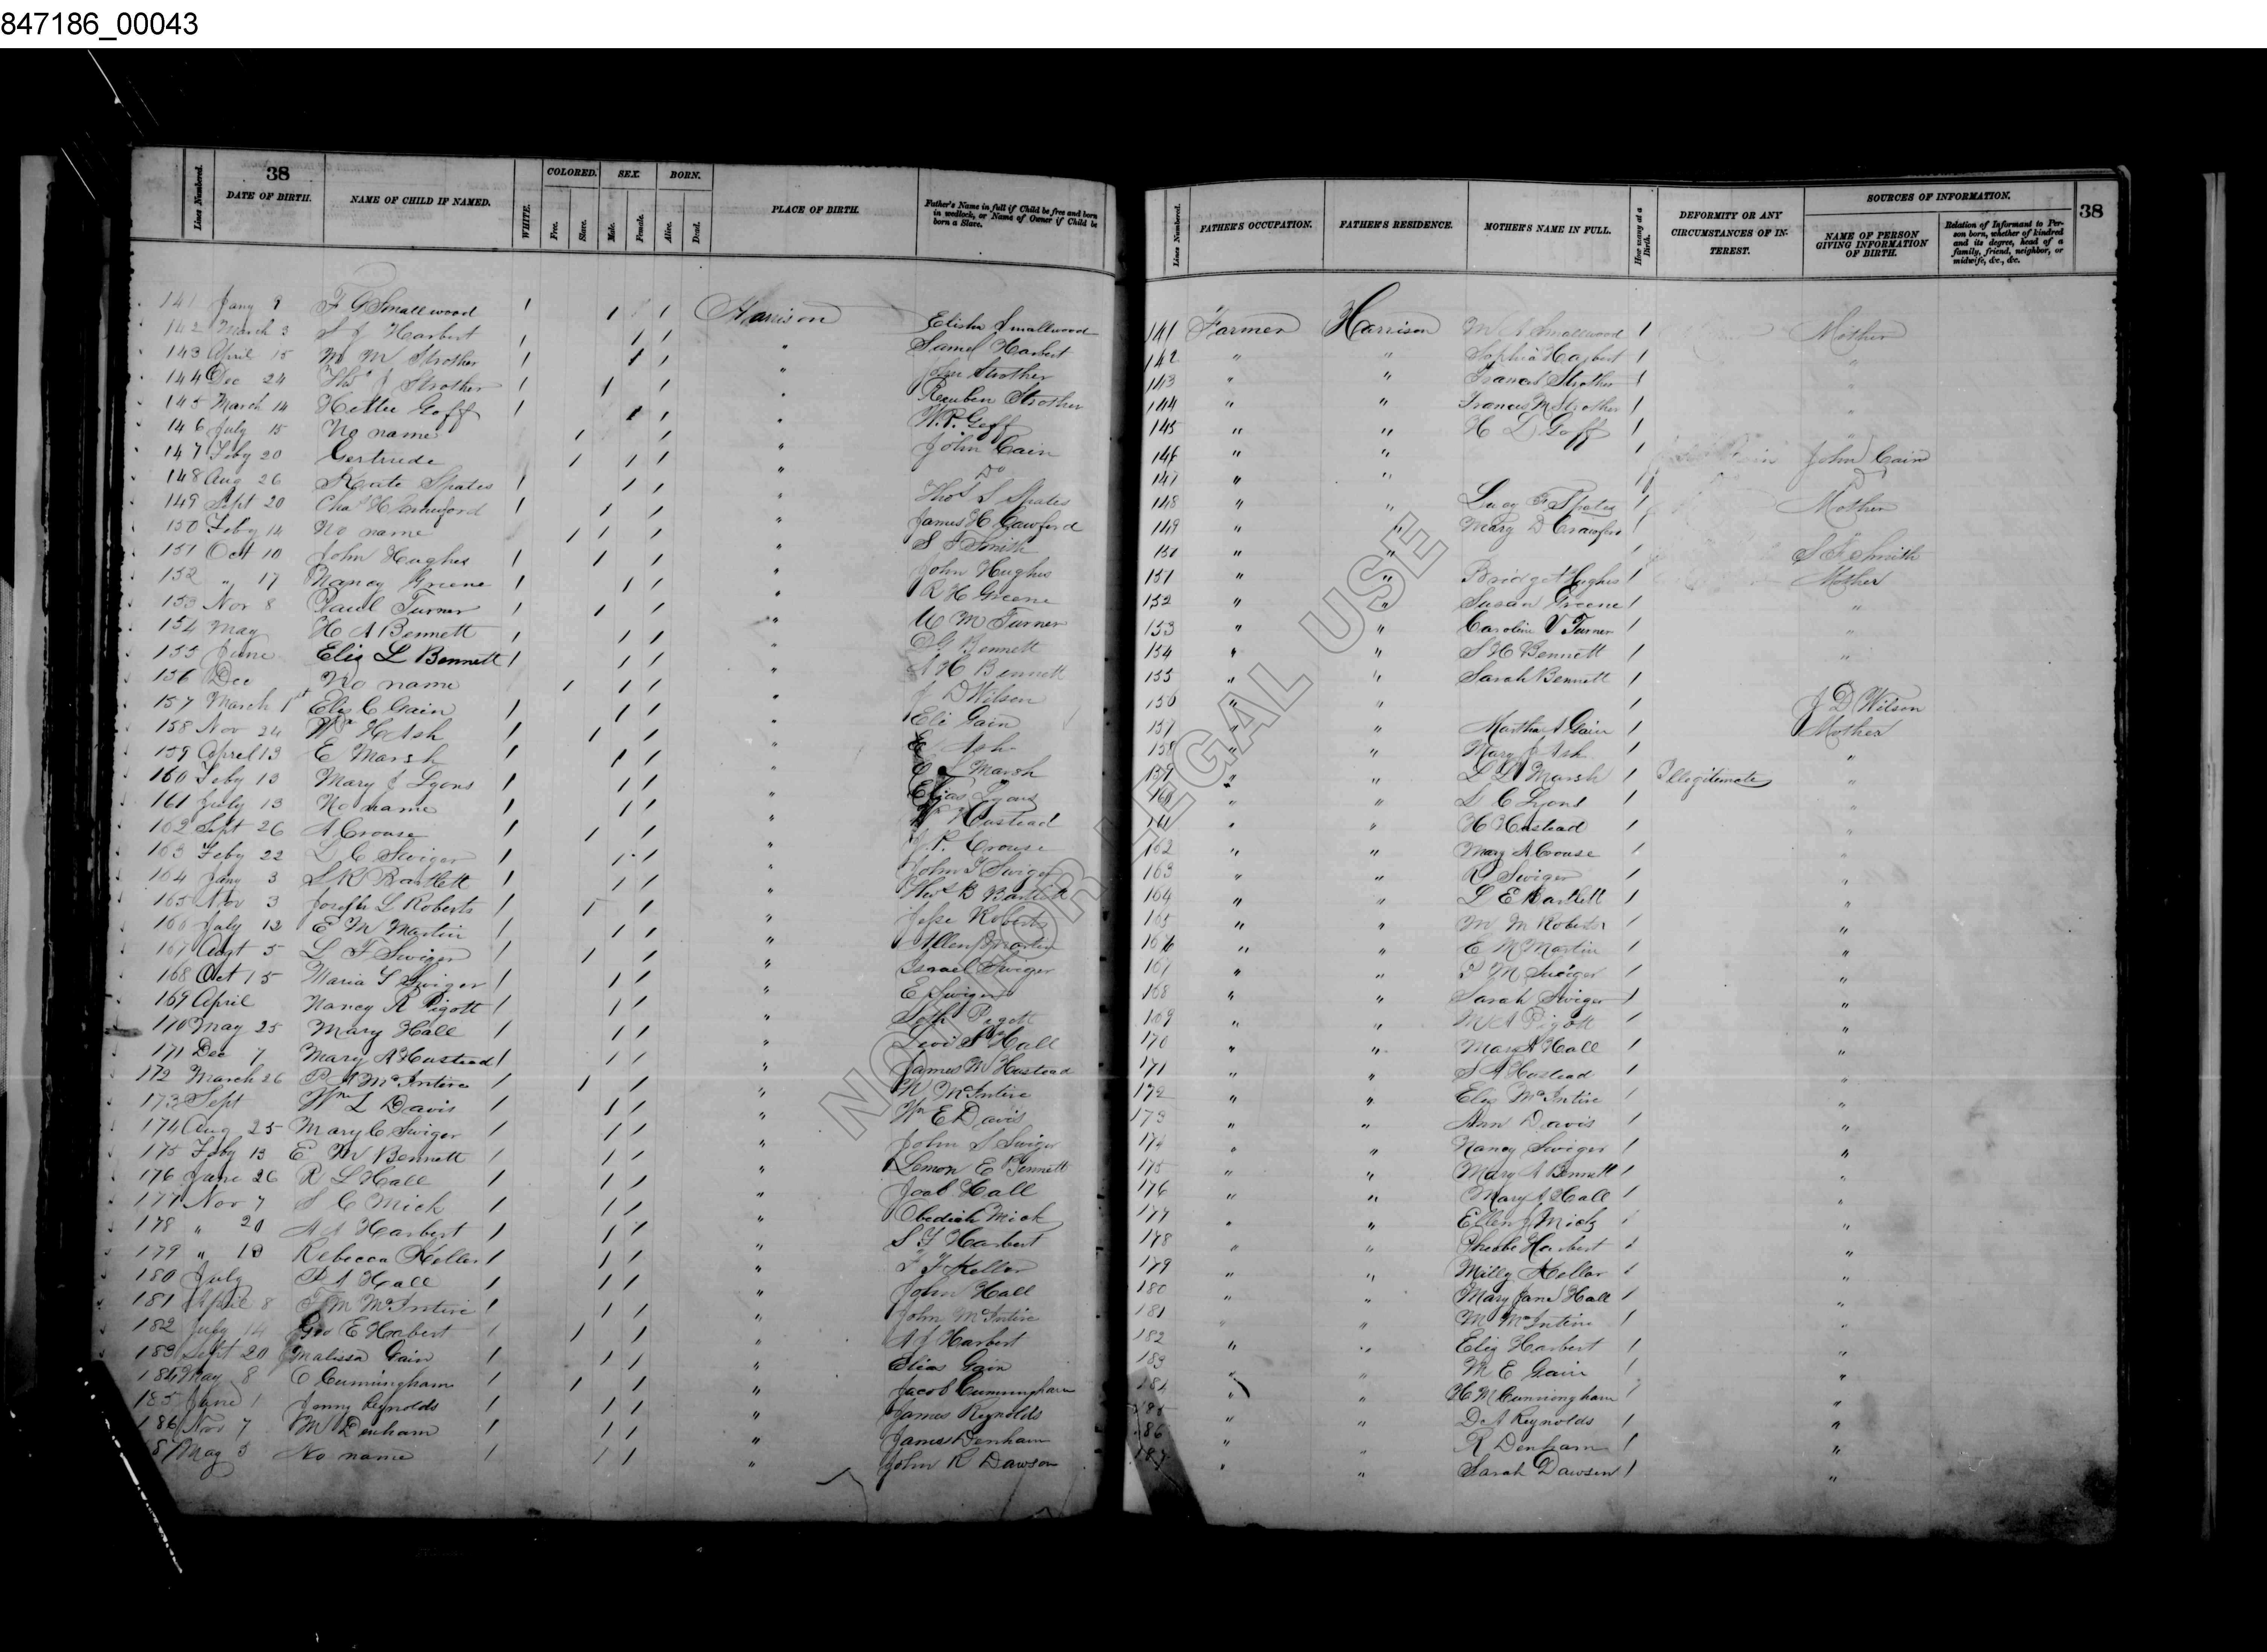 847186_00043
38
Lines Numbered.
DATE OF BIRTH.
NAME OF CHILD IF NAMED.
WHITE.
COLORED.
Free.
Slave.
SEX.
Male.
Female.
BORN.
Alive.
Dead.
PLACE OF BIRTH.
Father's Name in full if Child be free and born in wedlock, or Name of Owner if Child be born a Slave.
141 Jany 9 F G Smallwood 1 1 1 Harrison Elisha Smallwood
142 March 3 S J Harbert 1 1 1 " Saml Harbert
143 April 15 M M Strother 1 1 1 " Strother
144 Dec 24 Thos J Strother 1 1 1 " Reuben Strother
145 March 14 Hettie Goff 1 1 1 " W. P. Goff
146 July 15 No name 1 1 " John Cain
147 Feby 20 Gertrude 1 1 1 " Do
148 Aug 26 Kate Spates 1 1 1 " Thos S Spates
149 Sept 20 Chas H Crawford 1 1 1 " James H Crawford
150 Feby 14 No name 1 1 1 " Smith
151 Oct 10 John Hughes 1 1 1 " John Hughes
152 " 17 Nancy Greene 1 1 1 " R H Greene
153 Nov 8 Paul Turner 1 1 1 " U M Turner
154 May H A Bennett 1 1 1 " Bennett
155 June Eliz L Bennett 1 1 1 " A H Bennett
156 Dec No name 1 1 1 " J D Wilson
157 March 1st Eliz C Gain 1 1 1 " Eli Gain
158 Nov 24 Wm H Ash 1 1 1 " Ash
159 April 13 E Marsh 1 1 1 " Marsh
160 Feby 13 Mary J Lyons 1 1 1 " Elias Lyons
161 July 13 No name 1 1 1 " Hustead
162 Sept 26 A Crouse 1 1 1 " J. P. Crouse
163 Feby 22 L C Swiger 1 1 1 " John T Swiger
164 Jany 3 S R Bartlett 1 1 1 " Thos B Bartlett
165 Nov 3 Joseph L Roberts 1 1 1 " Jesse Roberts
166 July 12 E M Martin 1 1 1 " Allen Martin
167 Augt 5 L F Swiger 1 1 1 " Israel Swiger
168 Oct 15 Maria S Swiger 1 1 1 " E Swiger
169 April Nancy R Pigott 1 1 1 " Pigott
170 May 25 Mary Hall 1 1 1 " Levi S Hall
171 Dec 7 Mary A Hustead 1 1 1 " James M Hustead
172 March 26 P A McIntire 1 1 1 " M McIntire
173 Sept Wm L Davis 1 1 1 " Wm E Davis
174 Aug 25 Mary C Swiger 1 1 1 " John S Swiger
175 Feby 13 E M Bennett 1 1 1 " Lemon E Bennett
176 June 26 R L Hall 1 1 1 " Joab Hall
177 Nov 7 S C Mick 1 1 1 " Obediah Mick
178 " 20 A A Harbert 1 1 1 " S F Harbert
179 " 10 Rebecca Keller 1 1 1 " Keller
180 July A Hall 1 1 1 " John Hall
181 April 8 M McIntire 1 1 1 " John McIntire
182 July 14 Geo E Harbert 1 1 1 " A J Harbert
183 Sept 20 Malissa Gain 1 1 1 " Elias Gain
184 May 8 C Cunningham 1 1 1 " Jacob Cunningham
185 June 1 Jenny Reynolds 1 1 1 " James Reynolds
186 Nov 7 M Denham 1 1 1 " James Denham
87 May 5 No name 1 1 1 " John R Dawson
Lines Numbered.
FATHER'S OCCUPATION.
FATHER'S RESIDENCE.
MOTHER'S NAME IN FULL.
How many at a Birth.
DEFORMITY OR ANY CIRCUMSTANCES OF INTEREST.
SOURCES OF INFORMATION.
NAME OF PERSON GIVING INFORMATION OF BIRTH.
Relation of Informant to Person born, whether of kindred and its degree, head of a family, friend, neighbor, or midwife, &c., &c.
38
141 Farmer Harrison M A Smallwood 1 Mother
142 " " Sophia Harbert 1 "
143 " " Frances Strother 1 "
144 " " Frances M Strother 1 "
145 " " H L Goff 1 "
146 " " 1 John Cain
147 " " 1
148 " " Lucy F Spates 1 Mother
149 " " Mary D Crawford 1
150 " " 1 Smith
151 " " Bridget Hughes 1 Mother
152 " " Susan Greene 1 "
153 " " Caroline V Turner 1 "
154 " " S H Bennett 1 "
155 " " Sarah Bennett 1
156 " " 1 J D Wilson
157 " " Martha A Gain 1 Mother
158 " " Mary J Ash 1 "
159 " " L L Marsh 1 Illegitimate "
160 " " L C Lyons 1 "
161 " " H Hustead 1 "
162 " " Mary A Crouse 1 "
163 " " R Swiger 1 "
164 " " L E Bartlett 1 "
165 " " M M Roberts 1 "
166 " " E M Martin 1 "
167 " " P M Swiger 1 "
168 " " Sarah Swiger 1 "
169 " " M A Pigott 1 "
170 " " Mary A Hall 1 "
171 " " S A Hustead 1 "
172 " " Eliz McIntire 1 "
173 " " Ann Davis 1 "
174 " " Nancy Swiger 1 "
175 " " Mary A Bennett 1 "
176 " " Mary A Hall 1 "
177 " " Ellen J Mick 1 "
178 " " Pheobe Harbert 1 "
179 " " Milly Keller 1 "
180 " " Mary Jane Hall 1 "
181 " " M McIntire 1 "
182 " " Eliz Harbert 1 "
183 " " M E Gain 1 "
184 " " H M Cunningham 1 "
185 " " D A Reynolds 1 "
186 " " R Denham 1 "
187 " " Sarah Dawson 1 "
NOT FOR LEGAL USE